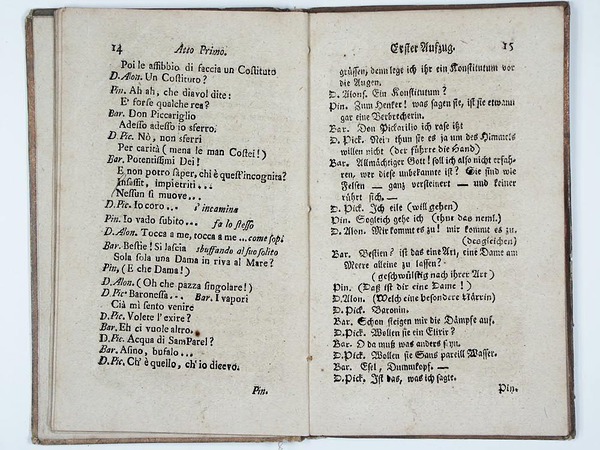 14 Atto Primo.
Poi le affibbio di faccia un Costituto
D. Alon. Un Costituto?
Pin. Ah ah, che diavol dite:
E' forse qualche rea?
Bar. Don Piccariglio
Adesso adesso io sferro.
D. Pic. Nò, non sferri
Per carità (mena le man Costei!)
Bar. Potentissimi Dei!
E non potro saper, chi è quest'incognita?
Insassit, impierriti...
Nessun si muove...
D. Pic. Io coro... s'incamina
Pin. Io vado subito... fa lo stesso
D. Alon. Tocca a me, tocca a me ... come sopi
Bar. Bestie! Si lascia sbuffando al suo solito
Sola sola una Dama in riva al Mare?
Pin, (E che Dama!)
D. Alon. (Oh che pazza singolare!)
D. Pic. Baronessa... Bar. I vapori
Cià mi sento venire
D. Pic. Volete l'exire?
Bar. Eh ci vuole altro.
D. Pic. Acqua di SamParel?
Bar. Asino, bufalo...
D. Pic. Ch' è quello, ch' io dicevo.
Pin.
Erster Aufzug. 15
grüssen, denn lege ich ihr ein Konstitutum vor
die Augen.
D. Alons. Ein Konstitutum?
Pin. Zum Henker! was sagen sie, ist sie etwann
gar eine Verbrecherin.
Bar. Don Pickarilio ich rase itzt
D. Pick. Nein thun sie es ja um des Himmels
willen nicht (der führte die Hand)
Bar. Allmächtiger Gott! soll ich also nicht erfah-
ren, wer diese unbekannte ist? Sie sind wie
Felsen — ganz versteinert — und keiner
rührt sich. —
D. Pick. Ich eile (will gehen)
Pin. Sogleich gehe ich (thut das neml.)
D. Alon. Mir kommt es zu! mir kommt es zu.
(desgleichen)
Bar. Bestien? ist das eine Art, eine Dame am
Meere alleine zu lassen?
(geschwülstig nach ihrer Art)
Pin. (Das ist dir eine Dame!)
D. Alon. (Welch eine besondere Närrin)
D. Pick. Baronin.
Bar. Schon steigen mir die Dämpfe auf.
D. Pick. Wollen sie ein Elixir?
Bar. O da muß was anders seyn.
D. Pick. Wollen sie Sans pareill Wasser.
Bar. Esel, Dummkopf. —
D. Pick. Ist das, was ich sagte.
Pin.